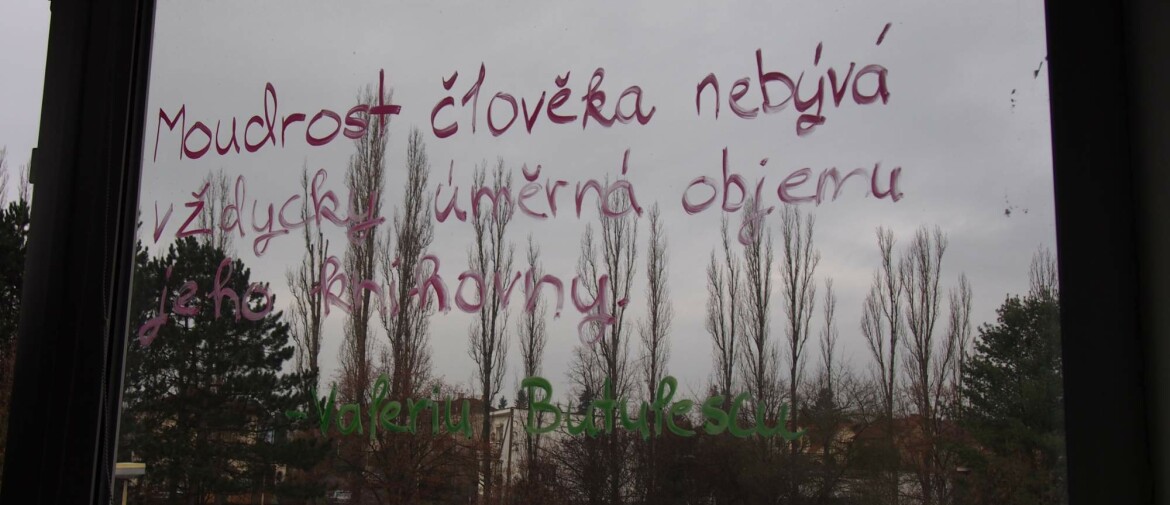 Moudrost člověka nebývá
vždycky úměrná objemu
jeho knihovny.
-Valeriu Butulescu